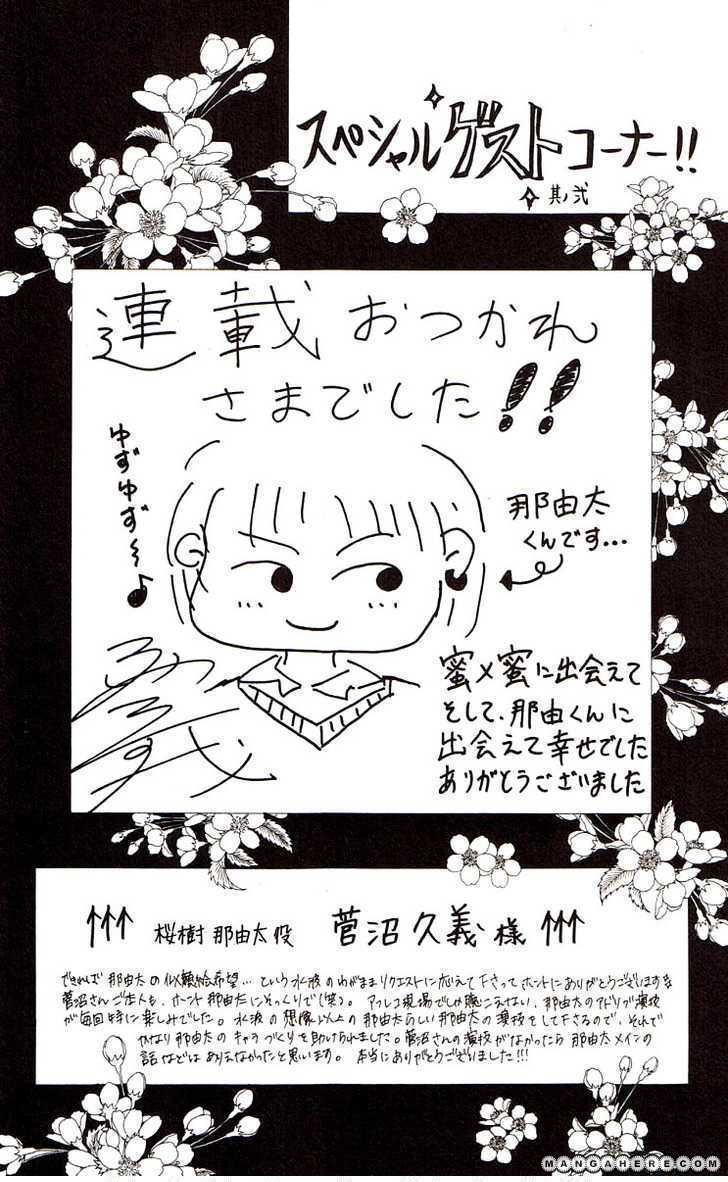 スペシャルゲストコーナー!!
其ノ弐
連載おつかれ
さまでした!!
ゆずゆず〜♪
那由太
くんです…
蜜×蜜に出会えて
そして、那由くんに
出会えて幸せでした
ありがとうございました
↑↑↑ 桜樹 那由太役 菅沼久義様 ↑↑↑
できれば 那由太の似顔絵希望… という水波のわがままリクエストに応えて下さってホントにありがとうございます
菅沼さんご本人も、ホント那由太にそっくりで(笑)。アフレコ現場でしか聴こえない、那由太のアドリブ演技
が毎回特に楽しみでした。水波の想像以上の那由太らしい那由太の演技をして下さるので、それで
かなり那由太のキャラづくりを助けられました。菅沼さんの演技がなかったら那由太メインの
話などはありえなかったと思います。本当にありがとうございました!!!
MANGAHERE.COM